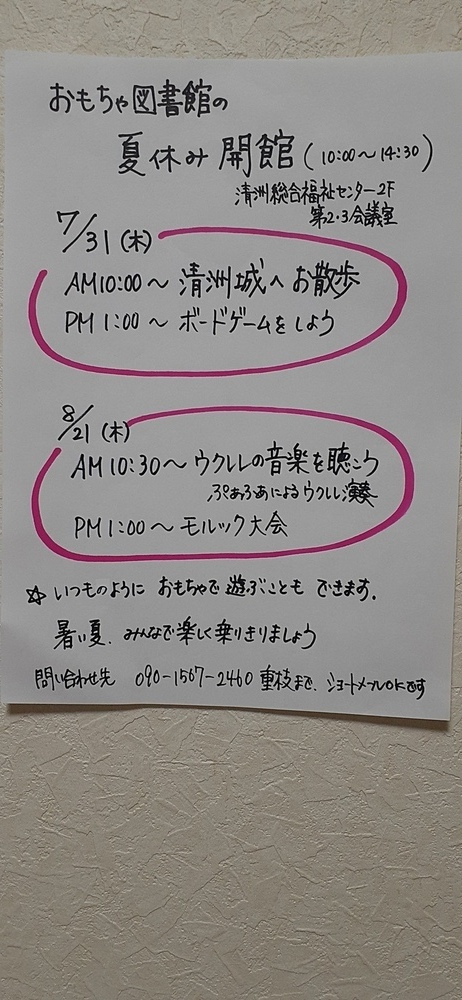 おもちゃ図書館の
夏休み開館(10:00〜14:30)
清洲総合福祉センター2F
第2・3会議室
7/31(木)
AM10:00〜 清洲城へお散歩
PM1:00〜 ボードゲームをしよう
8/21(木)
AM10:30〜ウクレレの音楽を聴こう
ぷあふあによるウクレレ演奏
PM1:00〜モルック大会
☆いつものように おもちゃで遊ぶことも できます.
暑い夏.みんなで楽しく乗りきりましょう
問い合わせ先 090-1567-2460 重枝まで.ショートメールOKです